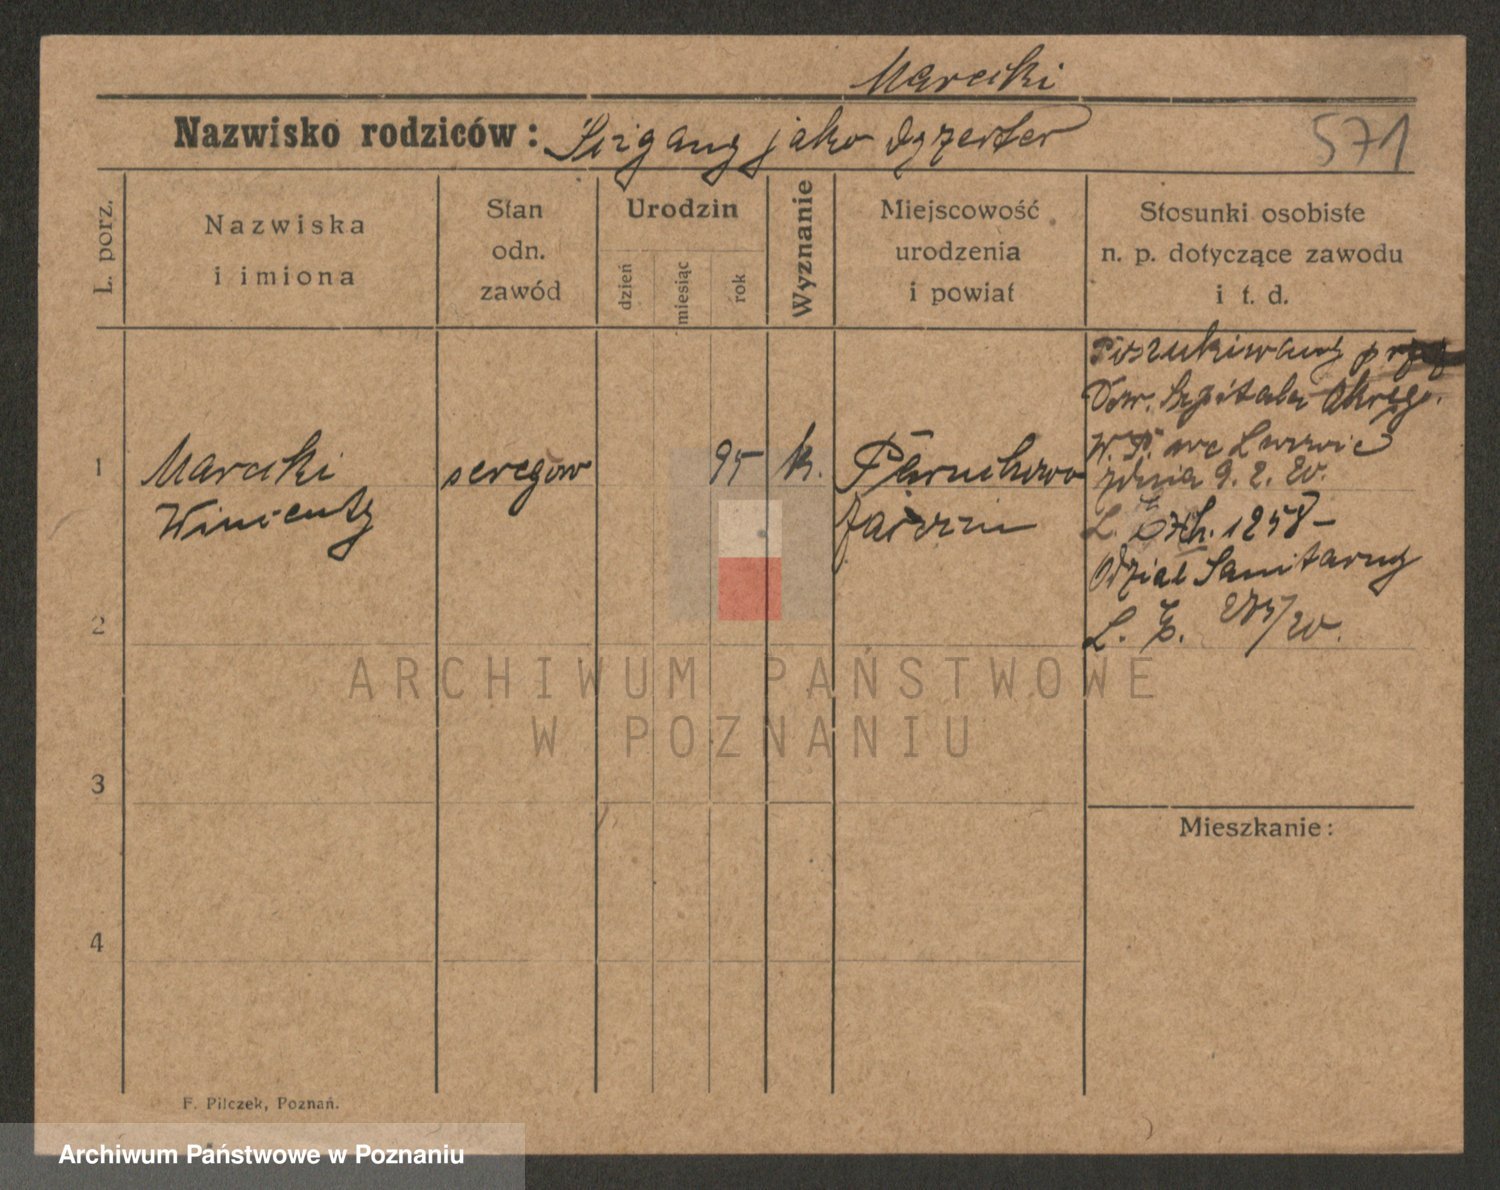 Marcki
Nazwisko rodziców: Ścigany jako dyzerter
571
L. porz.
Nazwiska
i imiona
Stan
odn.
zawód
Urodzin
dzień
miesiąc
rok
Wyznanie
Miejscowość
urodzenia
i powiat
Stosunki osobiste
n. p. dotyczące zawodu
i t. d.
1
Marcki
Wincenty
szregow
95
k.
Jarocin
Poszukiwany przez
Dow. Szpitala Okręgo.
W.P. we Lwowie
zdnia 9. 2. 20.
L. Exh. 1258-
Odział Sanitarny
L. E. 275/20.
2
3
4
Mieszkanie:
F. Pilczek, Poznań.
ARCHIWUM PAŃSTWOWE
W POZNANIU
Archiwum Państwowe w Poznaniu